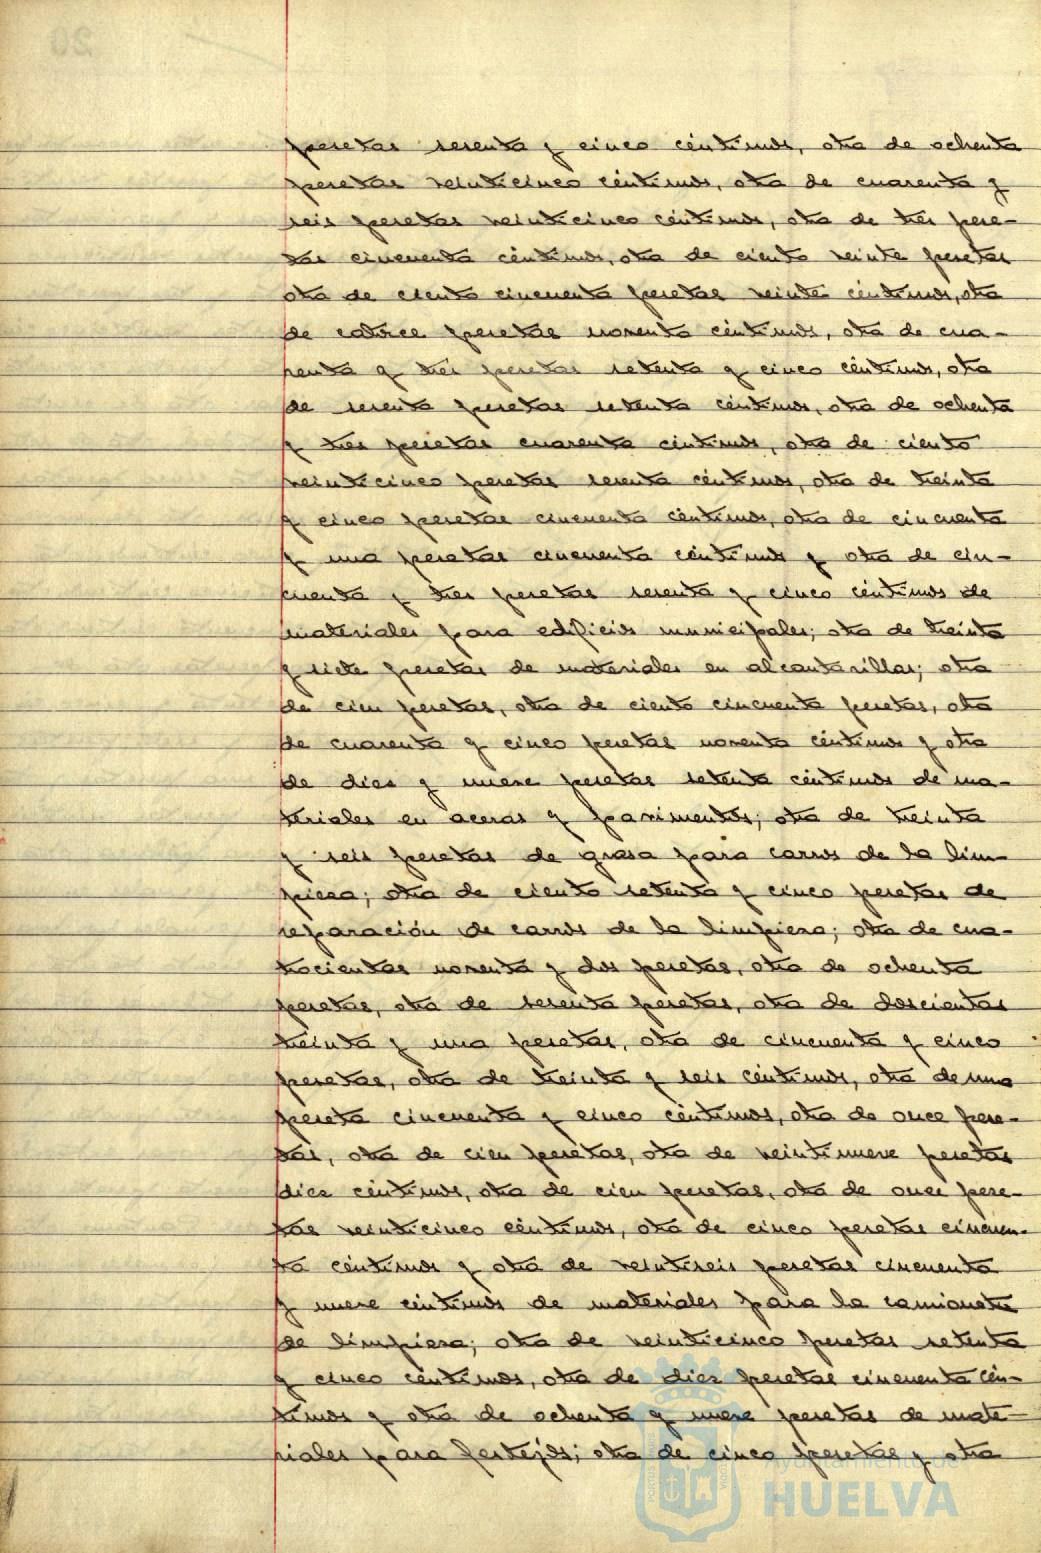 pesetas sesenta y cinco céntimos, otra de ochenta
pesetas veinticinco céntimos, otra de cuarenta y
seis pesetas veinticinco céntimos, otra de tres pese-
tas cincuenta céntimos, otra de ciento veinte pesetas
otra de ciento cincuenta pesetas veinte céntimos, otra
de catorce pesetas noventa céntimos, otra de cua-
renta y tres pesetas setenta y cinco céntimos, otra
de sesenta pesetas setenta céntimos, otra de ochenta
y tres pesetas cuarenta céntimos, otra de ciento
veinticinco pesetas sesenta céntimos, otra de treinta
y cinco pesetas cincuenta céntimos, otra de cincuenta
y una pesetas cincuenta céntimos y otra de cin-
cuenta y tres pesetas sesenta y cinco céntimos de
materiales para edificios municipales; otra de treinta
y siete pesetas de materiales en alcantarillas; otra
de cien pesetas, otra de ciento cincuenta pesetas, otra
de cuarenta y cinco pesetas noventa céntimos y otra
de diez y nueve pesetas setenta céntimos de ma-
teriales en aceras y pavimentos; otra de treinta
y seis pesetas de grasa para carros de la lim-
pieza; otra de ciento setenta y cinco pesetas de
reparación de carros de la limpieza; otra de cua-
trocientas noventa y dos pesetas, otra de ochenta
pesetas, otra de sesenta pesetas, otra de doscientas
treinta y una pesetas, otra de cincuenta y cinco
pesetas, otra de treinta y seis céntimos, otra de una
peseta cincuenta y cinco céntimos, otra de once pese-
tas, otra de cien pesetas, otra de veintinueve pesetas
diez céntimos, otra de cien pesetas, otra de once pese-
tas veinticinco céntimos, otra de cinco pesetas cincuen-
ta céntimos y otra de veintiseis pesetas cincuenta
y nueve céntimos de materiales para la camioneta
de limpieza; otra de veinticinco pesetas setenta
y cinco céntimos, otra de diez pesetas cincuenta cén-
timos y otra de ochenta y nueve pesetas de mate-
riales para festejos; otra de cinco pesetas y otra
Ayuntamiento de
HUELVA